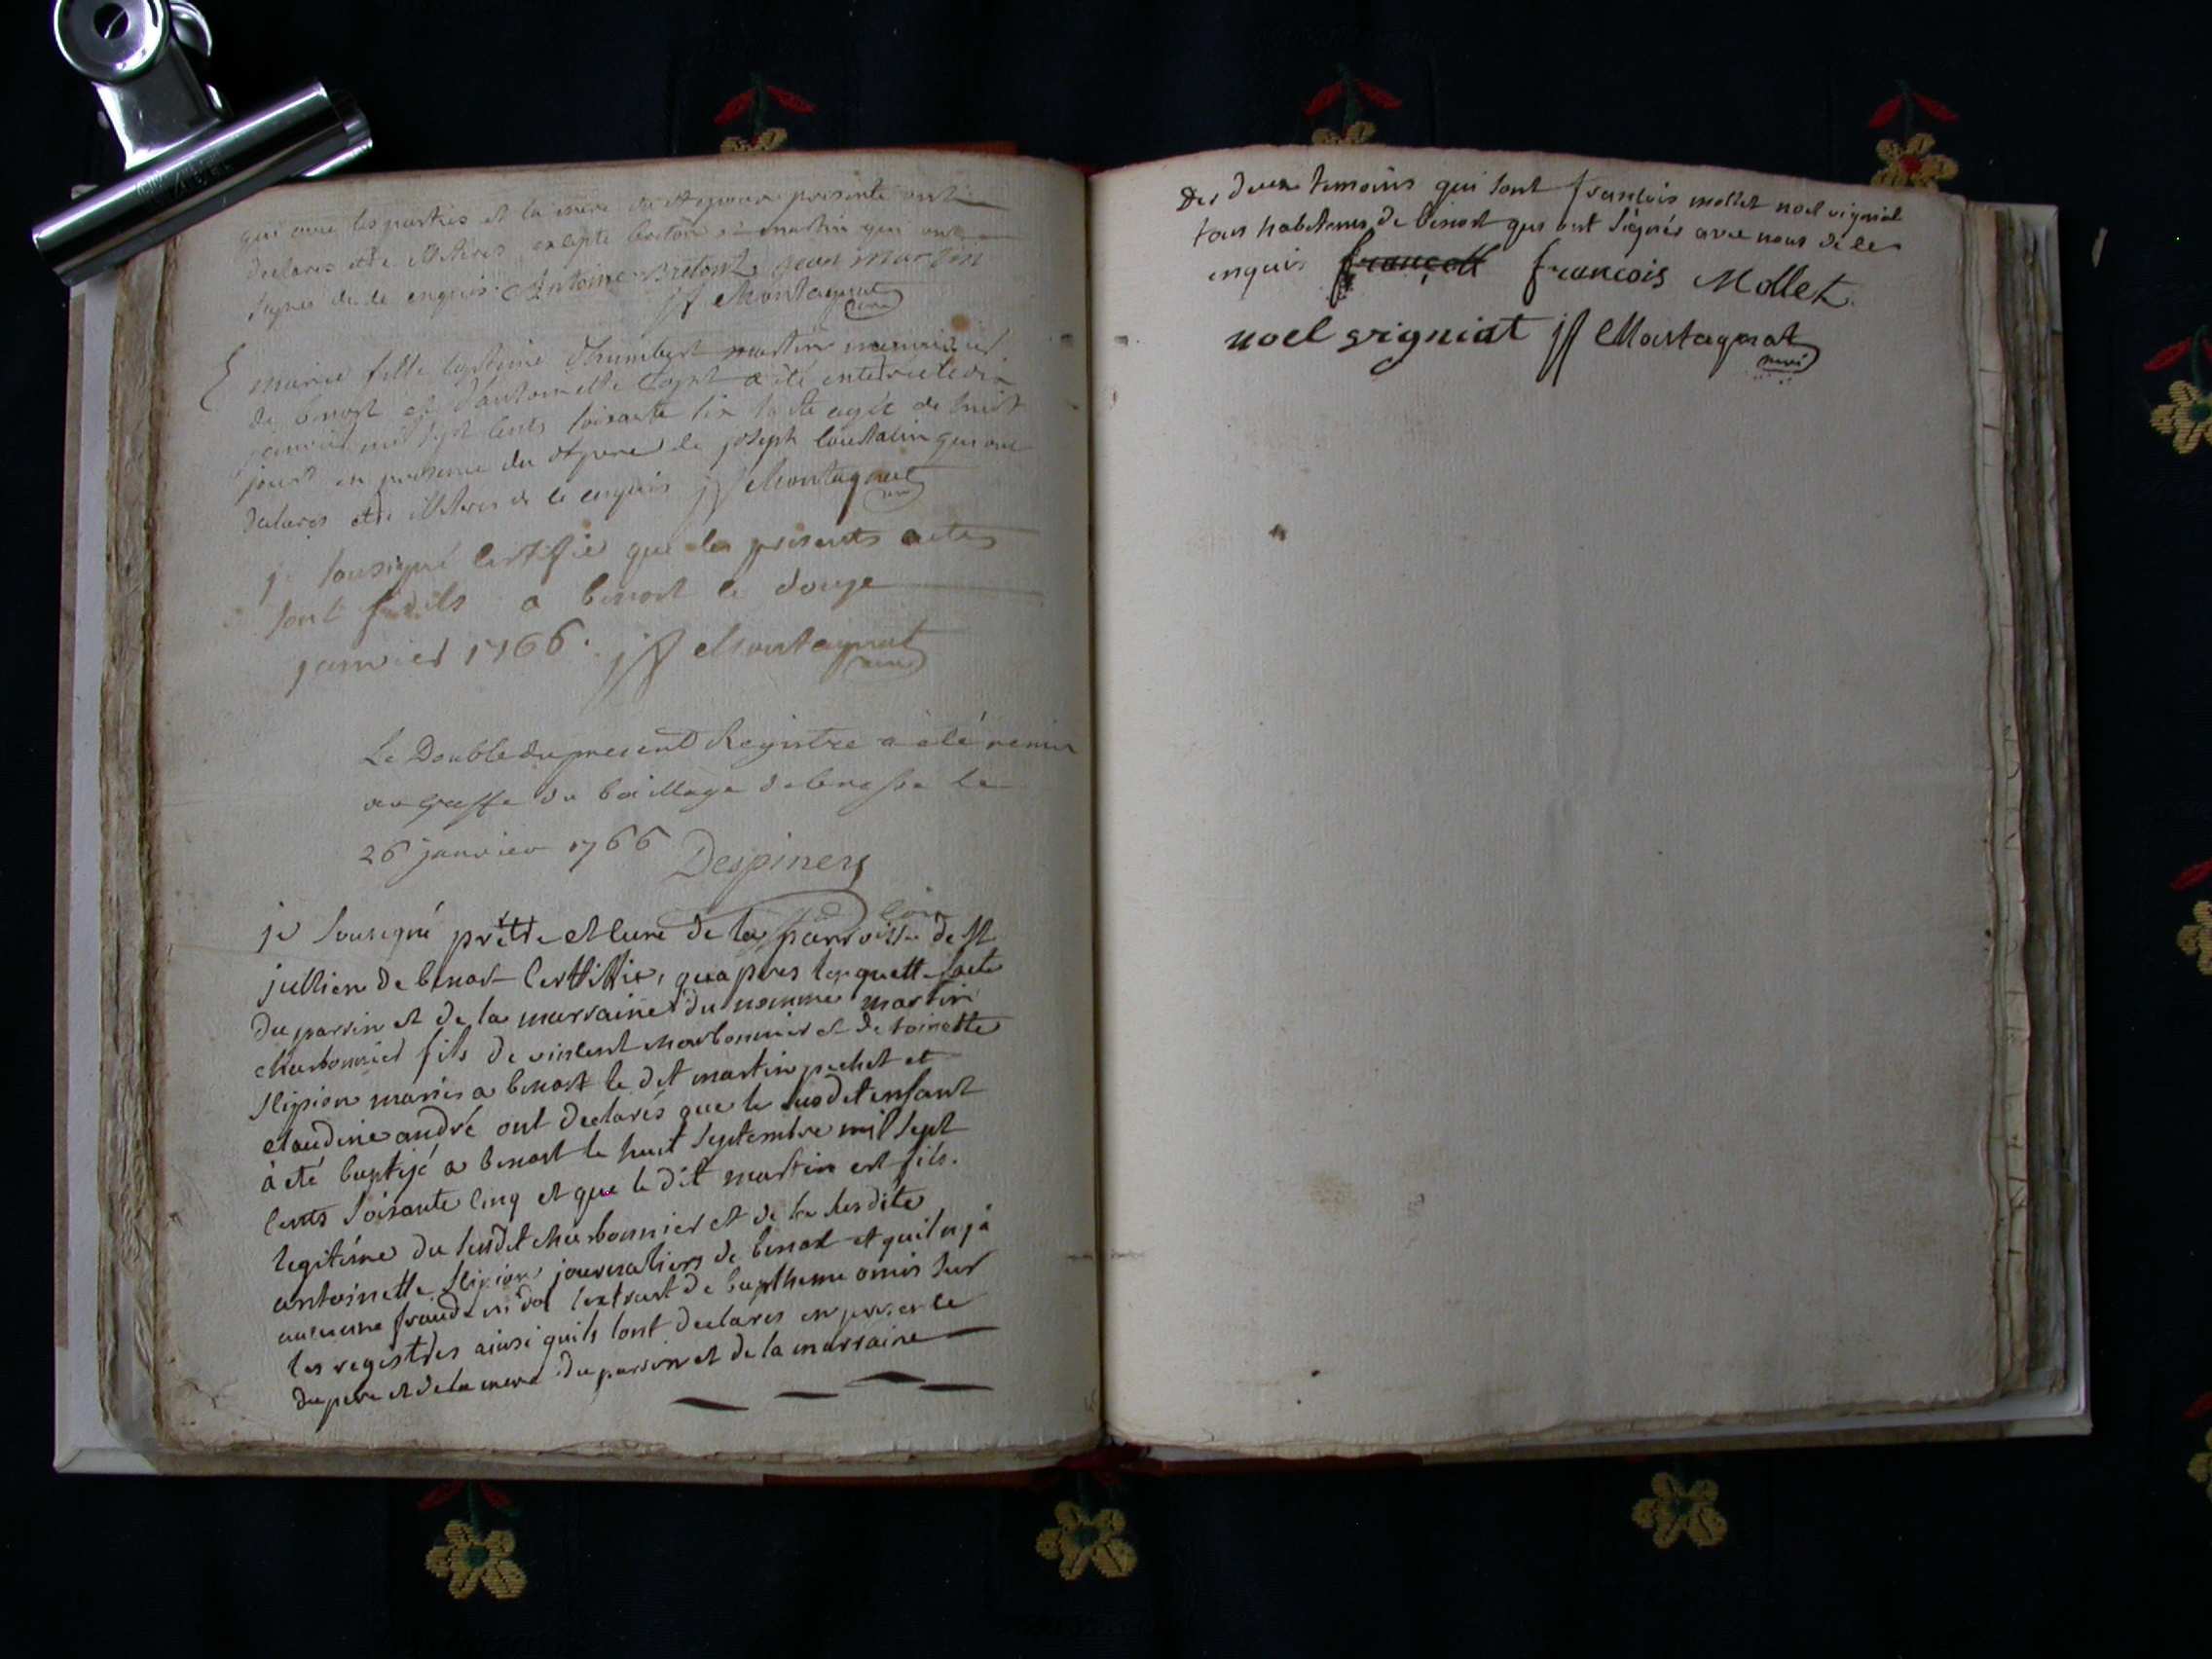 que avec les parties et la mere du dt epoux presente ont
declarés etre illiteres excepte breton et martin qui ont
signés de ce enquis. Antoine Bretont jean martin
jf Montagnat curé
marie fille legitime d'humbert martin
de benost et d'antoinette a été enterrée le dix
janvier mil sept cents soisante six agée de huit
jours en presence du dt pere de joseph qui ont
declarés etre illiteres de ce enquis jf Montagnat curé
je sousigné certifie que les presents actes
sont fidels a benost le douze
janvier 1766. jf Montagnat curé
Le Double du present Registre a été remis
au greffe du bailliage de bresse le
26 janvier 1766 Despiney
je sousigné prêtre et curé de la parroisse de st
jullien de benost certiffie, qu'apres lenquette faite
du parrin et de la marraine du nommé martin
charbonnier fils de vincent charbonnier et de toinette
mariés a benost le dit martin pechet et
claudine andré ont declarés que le susdit enfant
à eté baptisé a benost le huit septembre mil sept
cents soisante cinq et que le dit martin est fils
legitime du susdit charbonnier et de la susdite
antoinette journaliers de benost et quil n'ja
aucune fraude ni dol lextrait de baptheme omis sur
les registres ainsi quils lont declarés en presence
du pere et de la mere du parrin et de la marraine
des deux temoins qui sont francois mollet noel vigniat
tous habitans de benost qui ont signés avec nous de ce
enquis francois Mollet
noel vigniat jf Montagnat curé